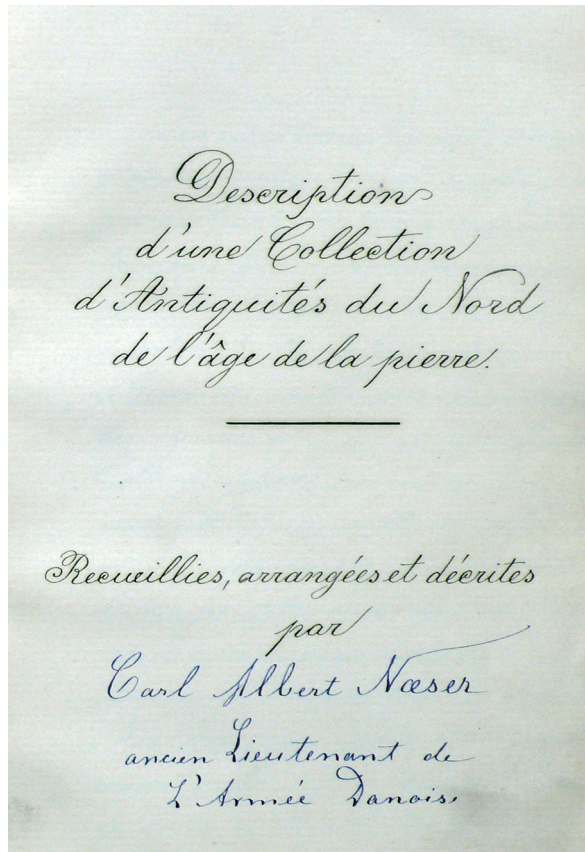 Description
d'une Collection
d'Antiquités du Nord
de l'âge de la pierre.
Recueillies, arrangées et décrites
par
Carl Albert Næser
ancien Lieutenant de
L'Armée Danoise